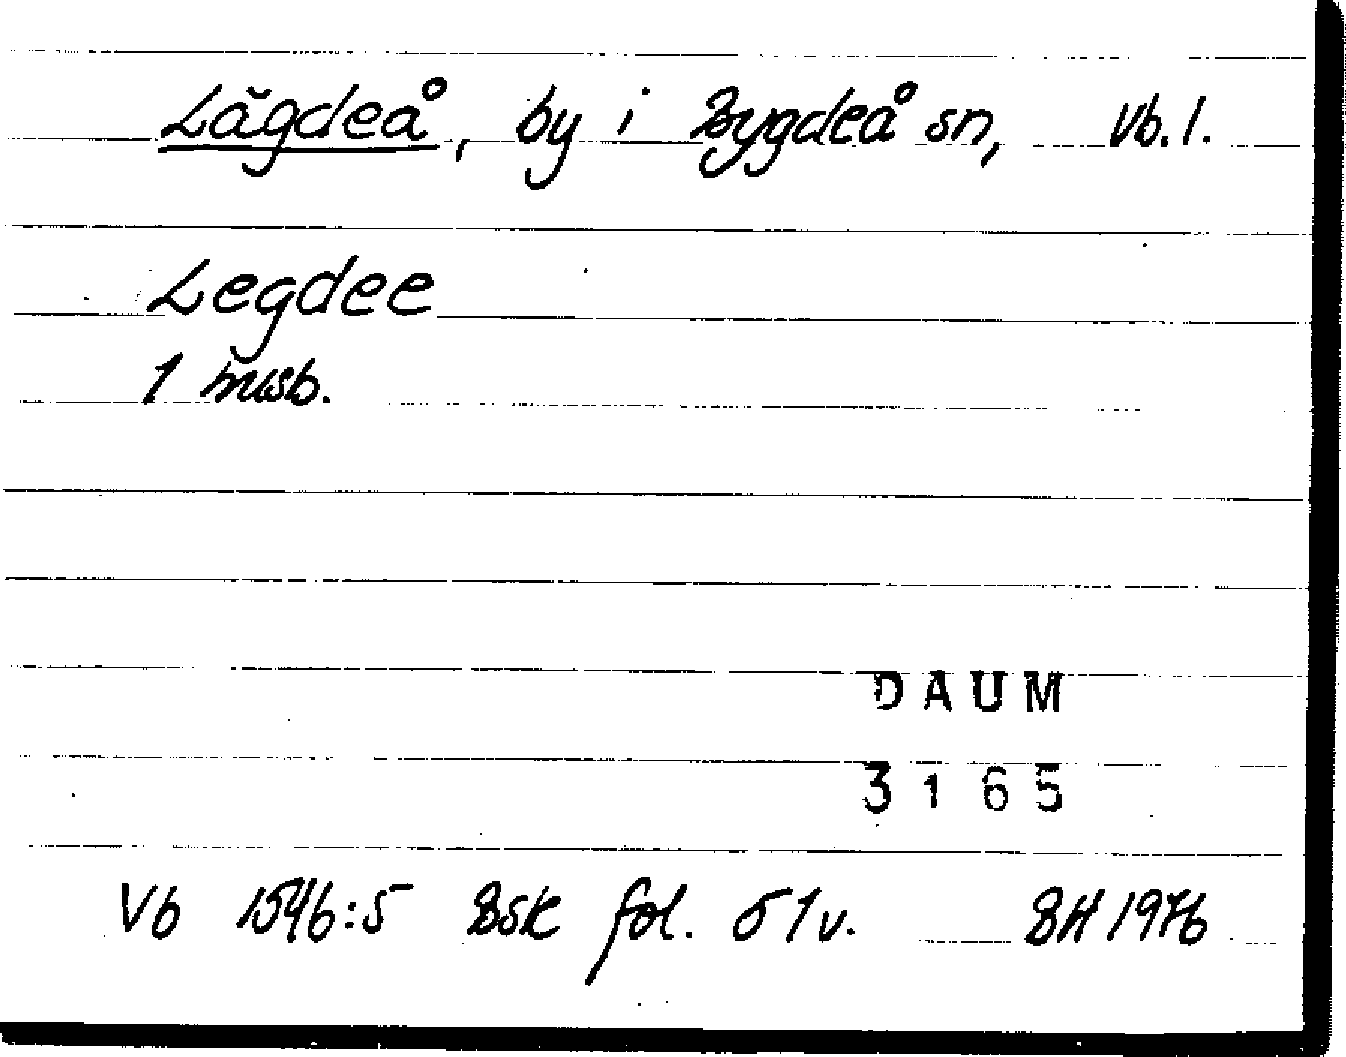 Lägdeå, by i Bygdeå sn, Vb. l.
Legdee
1 husb.
DAUM
3165
Vb 1546:5 Bsk fol. 51v. BH 1976